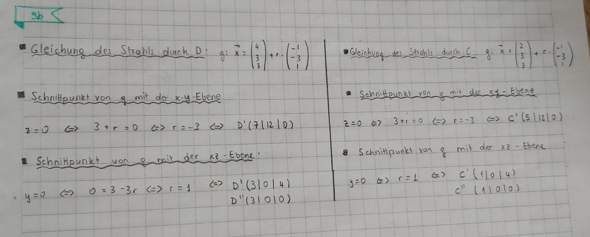 9b
▪ Gleichung des Strahls durch D: g: x⃗ = (4 3 3) + r · (-1 -3 1)
▪ Schnittpunkt von g mit der x-y-Ebene
z=0 ⇔ 3+r=0 ⇔ r=-3 ⇔ D'(7|12|0)
▪ Schnittpunkt von g mit der xz-Ebene:
y=0 ⇔ 0=3-3r ⇔ r=1 ⇔ D'(3|0|4)
D''(3|0|0)
▪ Gleichung des Strahls durch C: g: x⃗ = (2 3 3) + r · (-1 -3 1)
▪ Schnittpunkt von g mit der xy-Ebene
z=0 ⇔ 3+r=0 ⇔ r=-3 ⇔ C'(5|12|0)
▪ Schnittpunkt von g mit der xz-Ebene
y=0 ⇔ r=1 ⇔ C'(1|0|4)
C''(1|0|0)